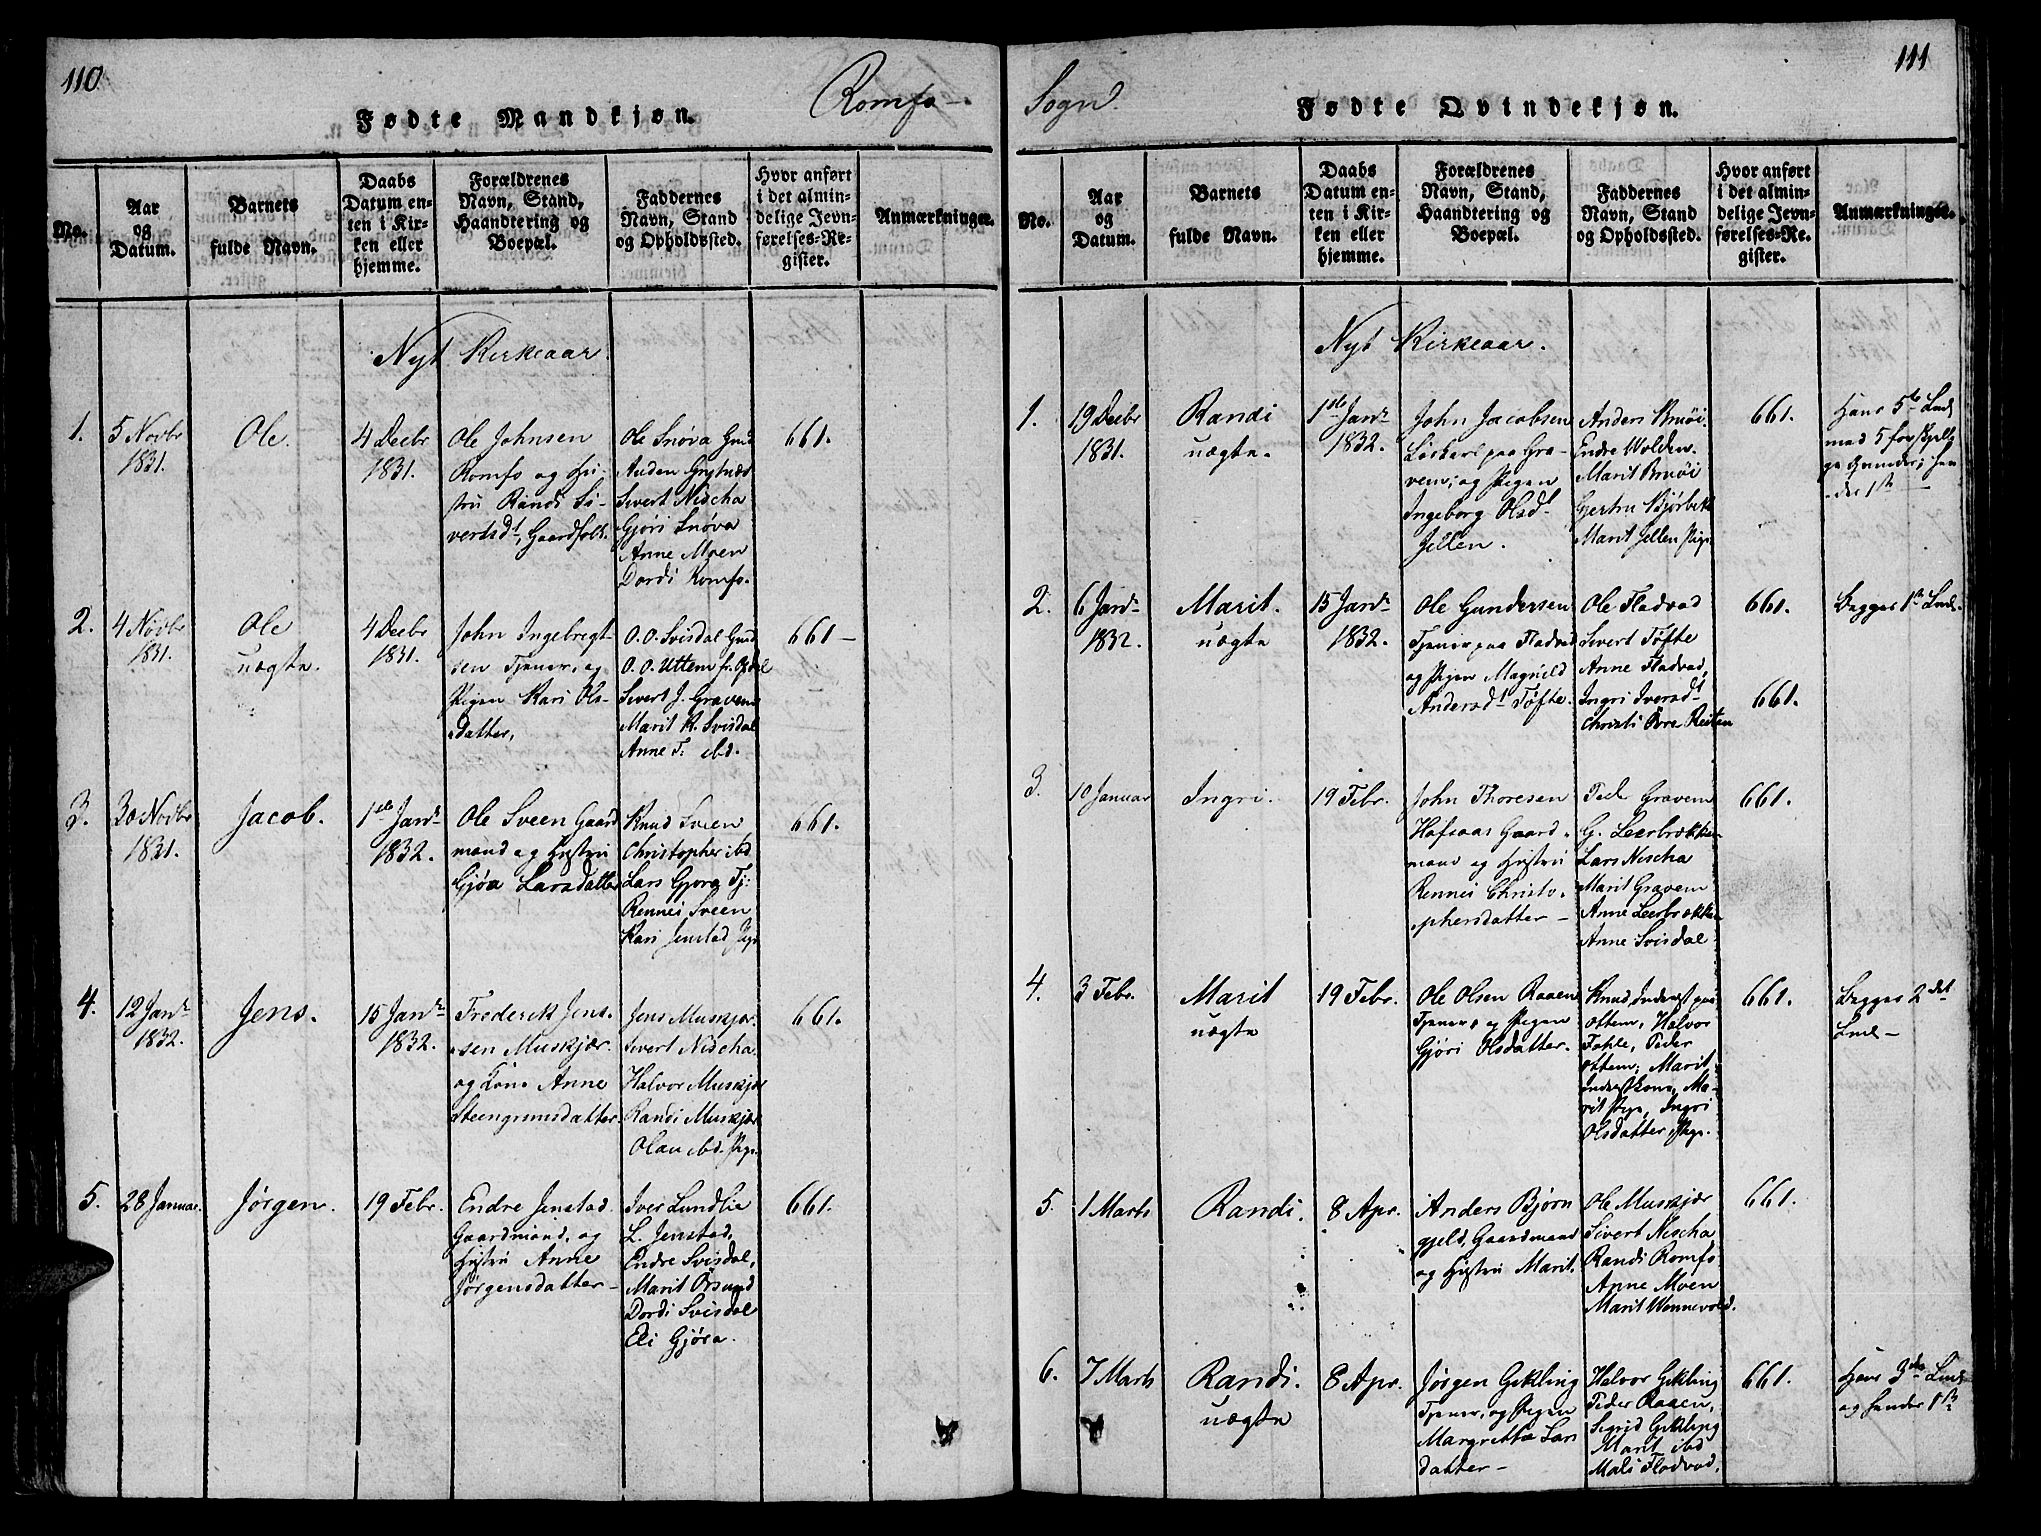 110
Romfo
Fødte Mandkjøn.
No.
Aar
og
Datum.
Barnets
fulde Navn.
Daabs
Datum en-
ten i Kir-
ken eller
hjemme.
Forældrenes
Navn, Stand,
Haandtering og
Boepæl.
Faddernes
Navn, Stand
og Opholdssted.
Hvor anført
i det almin-
delige Jevn-
førelses-Re-
gister.
Anmærkninger.
Nyt Kirkeaar.
1.
5 Novbr
1831.
Ole.
4 Decbr
1831.
Ole Johnsen
Romfo og Hu-
stru Randi Si-
vertsdt, Gaardfolk.
Ole Snøva Gmd
Auden Grytnæs
Sivert Nischa
Gjøri Snøva
Anne Moen
Dordi Romfo.
661.
2.
4 Novbr
1831.
Ole
uægte.
4 Decbr
1831.
John Ingebregt-
sen Tjener, og
Pigen Kari Ols-
datter,
O. O. Svisdal Gmd
O. O. Uttem fr. Opdal
Sivert J. Gravem
Marit K. Svisdal
Anne T. ibd.
661
3.
30 Novbr
1831.
Jacob.
1ste Janr
1832.
Ole Sveen Gaard
mand og Hustru
Gjøa Larsdatter
Knud Sveen
Christopher ibd
Lars Gjøra Tj:
Rennei Sveen
Kari Jenstad Pige
661.
4.
12 Janr
1832.
Jens.
15 Janr
1832.
Frederik Jens-
sen Muskjær
og Kone Anne
Steengrimsdatter.
Jens Muskjær.
Sivert Nischa.
Halvor Muskjær
Randi Muskjær
Olau ibd. Pige
661.
5.
28 Januar
Jørgen.
19 Febr.
Endre Jenstad
Gaardmand, og
Hustru Anne
Jørgensdatter
Iver Lundlie
L. Jenstad,
Endre Svisdal,
Marit Orsund
Dordi Svisdal
Eli Gjøra.
661.
111
Sogn
Fødte Qvindekjøn.
No.
Aar
og
Datum.
Barnets
fulde Navn.
Daabs
Datum en-
ten i Kir-
ken eller
hjemme.
Forældrenes
Navn, Stand,
Haandtering og
Boepæl.
Faddernes
Navn, Stand
og Opholdssted.
Hvor anført
i det almin-
delige Jevn-
førelses-Re-
gister.
Anmærkninger.
Nyt Kirkeaar.
1.
19 Decbr
1831.
Randi
uægte.
1ste Janr
1832.
John Jacobsen
Löskarl paa Gra-
vem; og Pigen
Ingeborg Olsd-
Jellen.
Anders Bruøi
Endre Wolden.
Marit Bruøi
Gjertru Bjørbek
Marit Jellen Pige
661.
Hans 5te Leiel
med 5 forskjelli-
ge Qvinder; hen-
des 1ste
2.
6 Janr
1832.
Marit.
uægte
15 Janr
1832.
Ole Gundersen
Tjener paa Fladvad
og Pigen Magnild
Andersdt Tøfte.
Ole Fladvad
Sivert Tøfte
Anne Fladvad,
Ingri Iversdt
Christi Øvre Reiten
661.
661.
Begges 1ste Leiel.
3.
10 Januar
Ingri.
19 Febr.
John Thoresen
Hafsaas Gaard-
mand og Hustru
Rennei Christo-
phersdatter
Peder Gravem
G. Leerbrækken
Lars Nischa
Marit Gravem
Anne Leerbrækken
Anne Svisdal
661.
4.
3 Febr.
Marit
uægte
19 Febr.
Ole Olsen Raaen
Tjener og Pigen
Gjøri Olsdatter.
Knud, Inderst paa
Ottem, Halvor
Fahle, Peder
Ottem, Marit,
Inderstkone, Ma-
rit Pige, Ingri
Olsdatter Pige.
661.
Begges 2det
Leiel
5.
1 Marts
Randi.
8 Apr.
Anders Bjørn
gjeld, Gaardmand
og Hustru Marit.
Ole Muskjær
Sivert Nischa
Randi Romfo
Anne Moen
Marit Wennevold.
661.
6.
7 Marts
Randi.
uægte
8 Apr.
Jørgen Gikling
Tjener, og Pigen
Margrethe Lars
datter
Halvor Gikling
Peder Raaen,
Sigrid Gikling
Marit ibd
Mali Fladvad,
661.
Hans 3die Leiel
og hendes 1ste